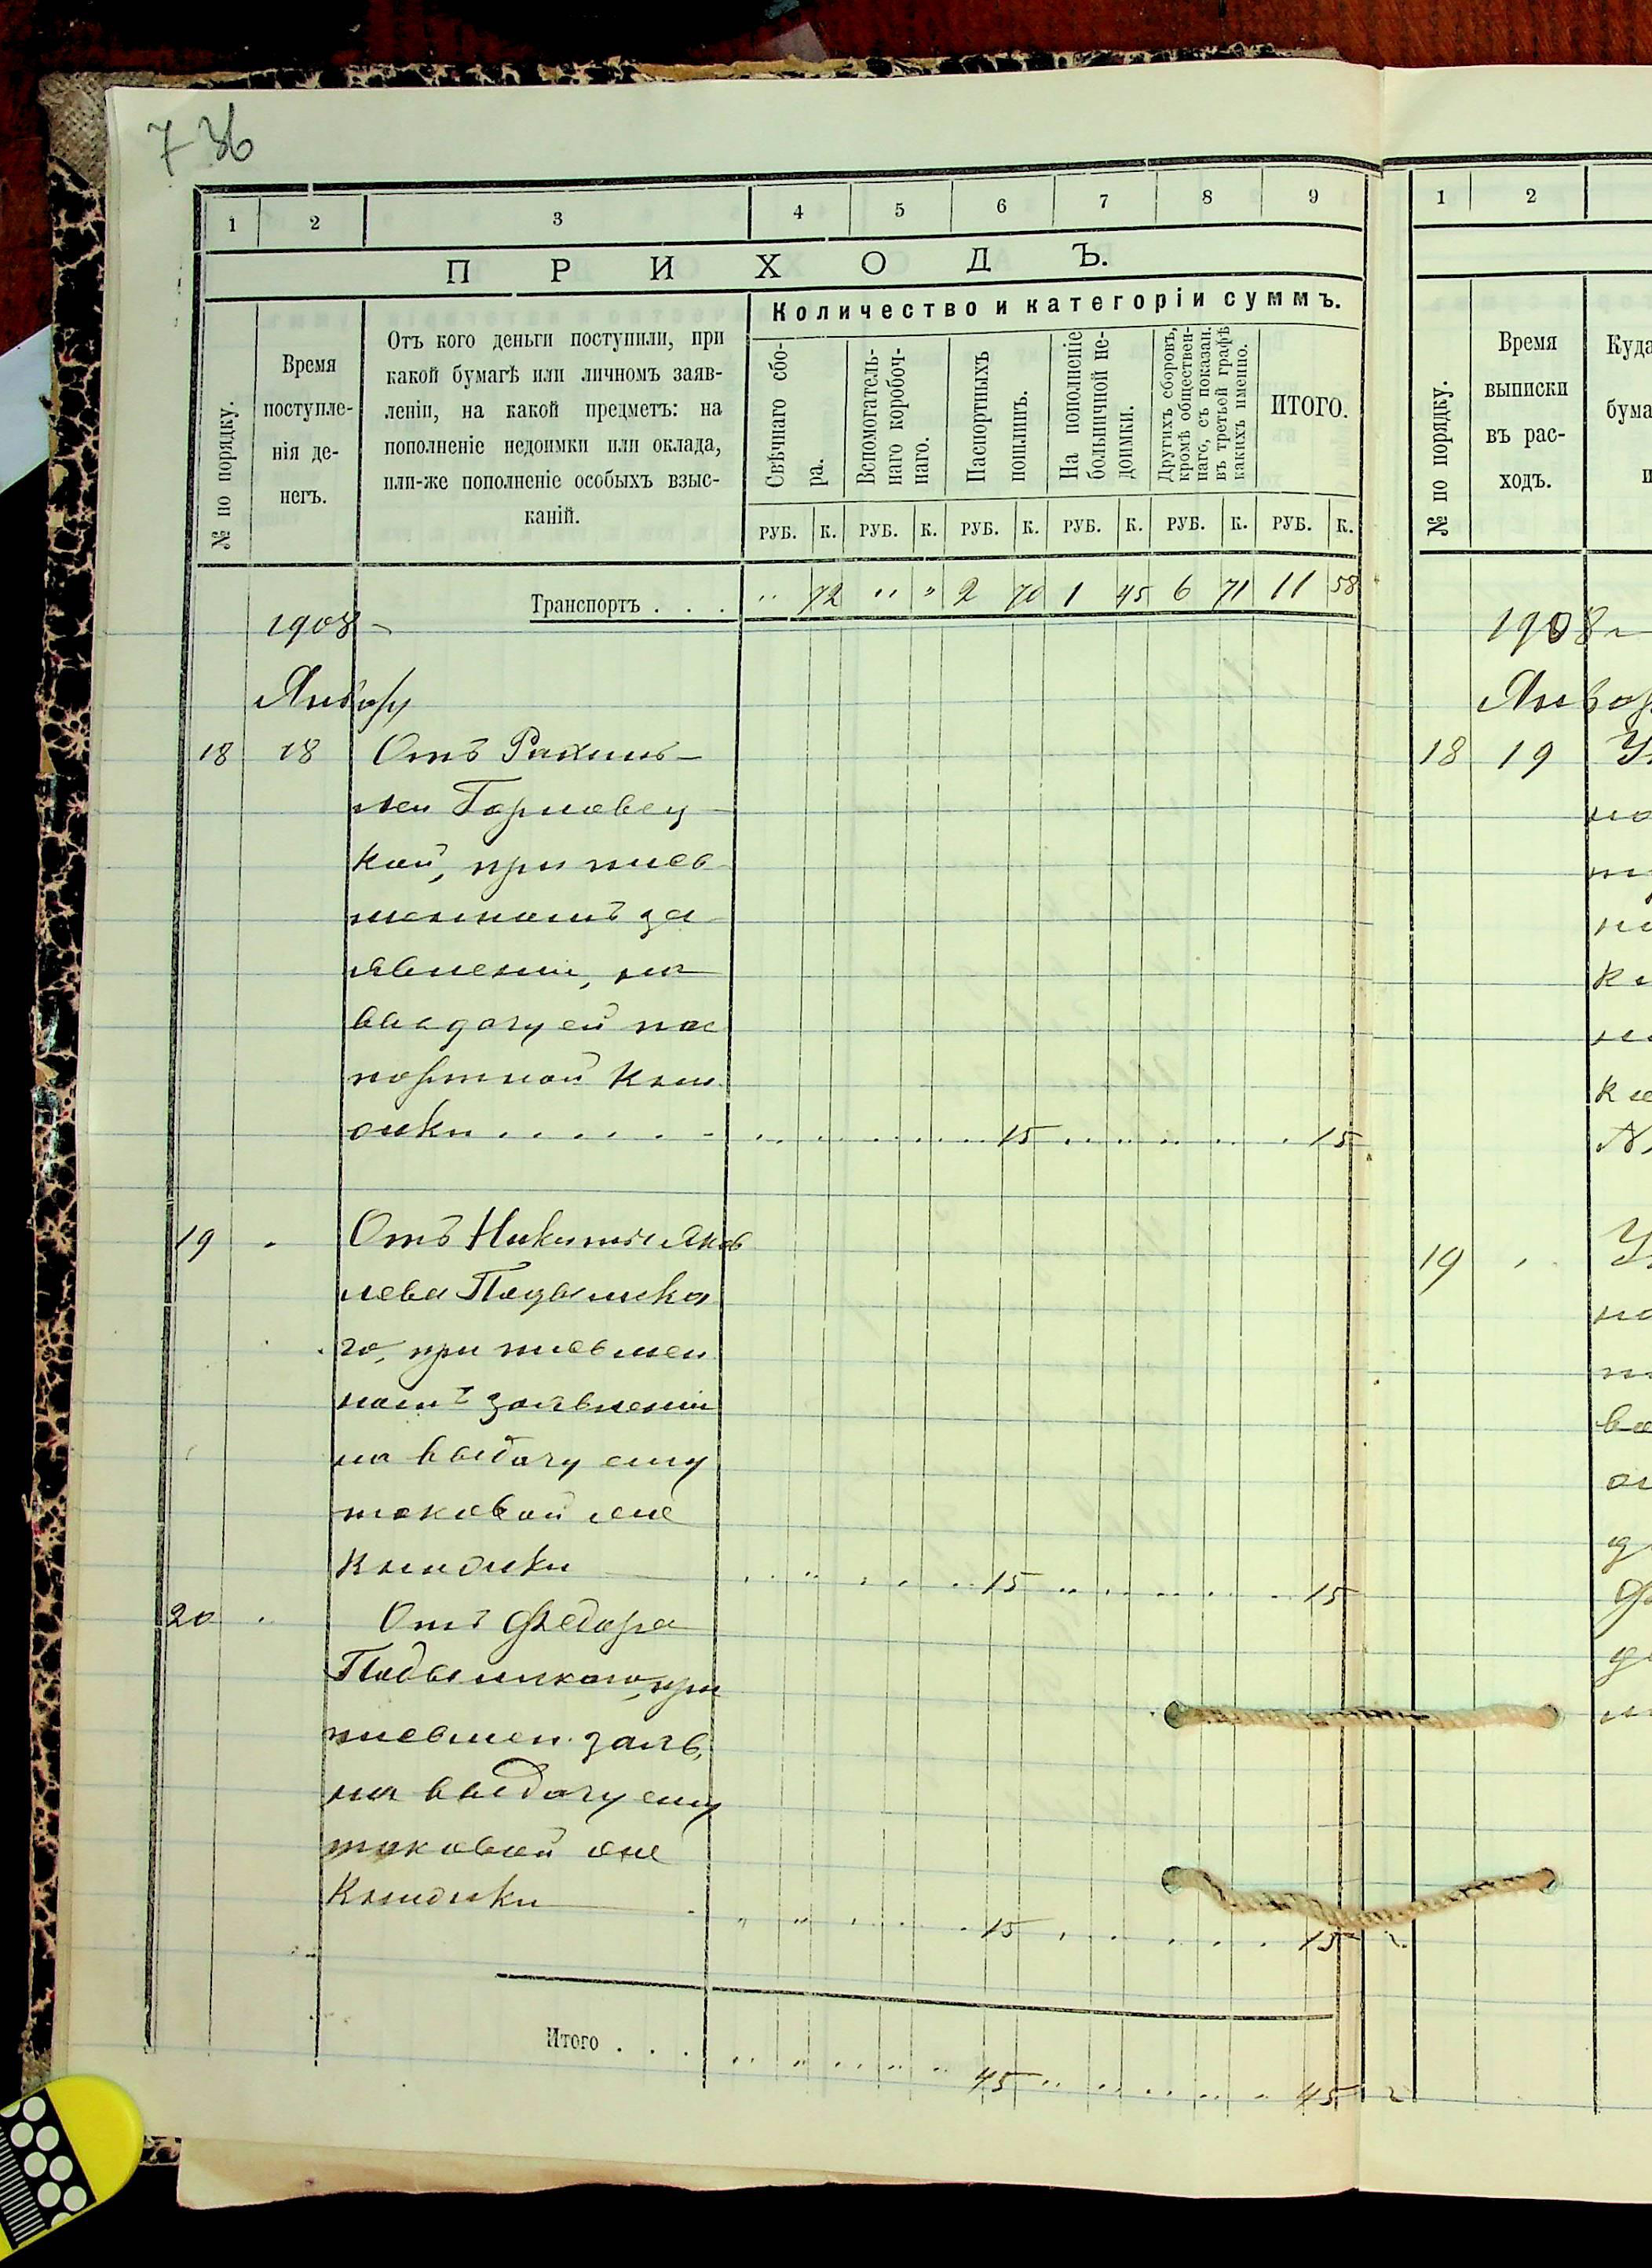 736
1 2 3 4 5 6 7 8 9
ПРИХОДЪ.
№ по порядку.
Время
поступле-
нія де-
негъ.
Отъ кого деньги поступили, при
какой бумагѣ или личномъ заяв-
леніи, на какой предметъ: на
пополненіе недоимки или оклада,
или-же пополненіе особыхъ взыс-
каній.
Количество и категоріи суммъ.
Свѣчнаго сбо-
ра.
Вспомогатель-
наго коробоч-
наго.
Паспортныхъ
пошлинъ.
На пополненіе
больничной не-
доимки.
Другихъ сборовъ,
кромѣ обществен-
наго, съ показан.
въ третьей графѣ
какихъ именно.
ИТОГО.
РУБ. К. РУБ. К. РУБ. К. РУБ. К. РУБ. К. РУБ. К.
Транспортъ . . . " 72 " " 2 70 1 45 6 71 11 58
1908
Январь
18 18 Отъ
кой, при пись
менномъ за
явленіи, на
выдачу ей пас
портной книж
ожки . . . . . . 15 . . . . 15
19 " Отъ Никиты Яков
лева Подымска
го, при письмен
номъ заявленіи
на выдачу ему
таковой же
книжки 15 15
20 " Отъ Федора
Подымскаго, при
письмен. заяв.
на выдачу ему
таковой же
Книжки 15 15
Итого . . . 45 45
1 2
№ по порядку.
Время
выписки
въ рас-
ходъ.
Куда
бума
1908
Январ
18 19
19 "